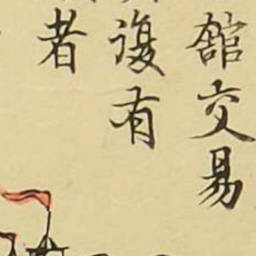 舘交易
復有
者